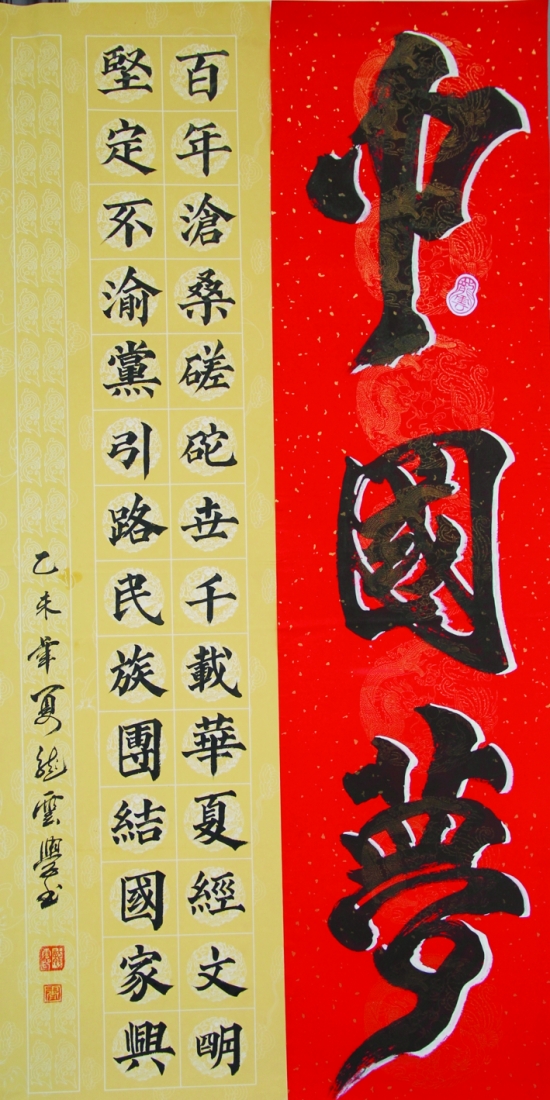 中國夢
百年滄桑磋砣世千載華夏經文明
堅定不渝黨引路民族團結國家興
乙未年夏龍雲學书